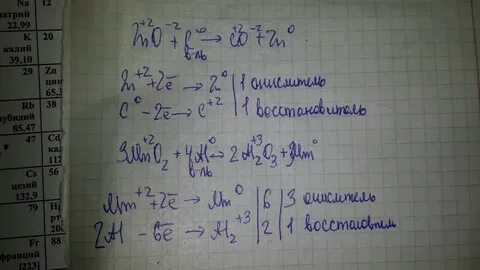 Na 12
натрий
22,99
K 20
калий
39,10
29 Zn
цин
65,3
Rb 38
рубидий
85,47
47 Cd
ка
112
Cs 56
цезий
132,9
79 Hg
рт
20
Fr 88
франций
[223]
+2 -2 0 +2 -2 0
ZnO + C → CO + Zn
в-ль
Zn⁺² + 2ē → Zn⁰ | 1 окислитель
C⁰ - 2ē → C⁺² | 1 восстановитель
+2 0 +3 0
3MnO₂ + 4Al → 2Al₂O₃ + 3Mn
в-ль
Mn⁺² + 2ē → Mn⁰ | 6 | 3 окислитель
2Al - 6ē → Al₂⁺³ | 2 | 1 восстановитель